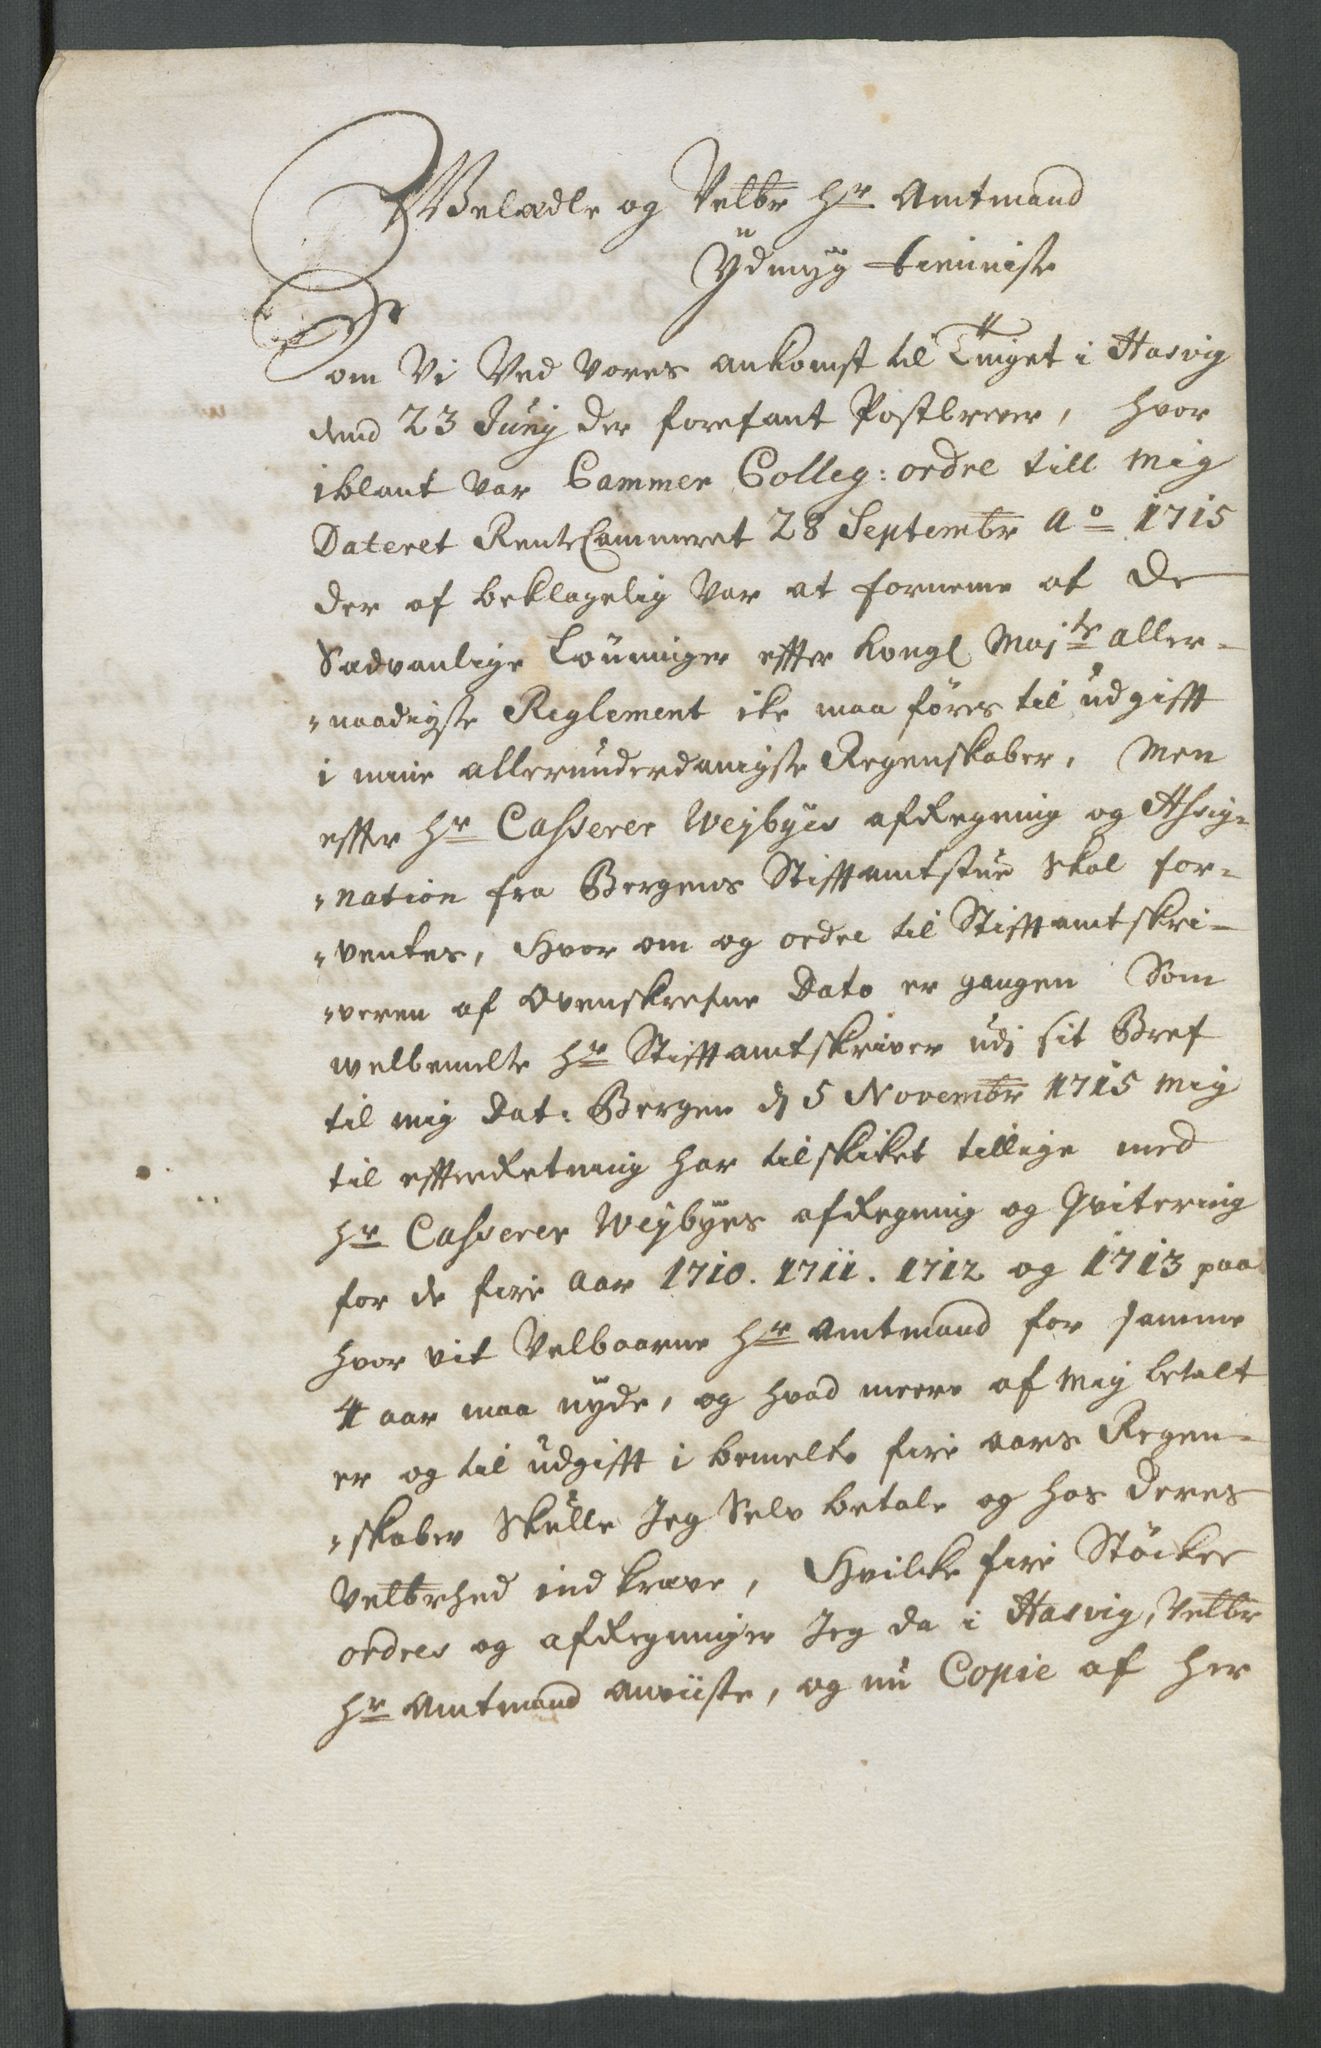 Welædle og Velbr Hr Amtmand
Ydmyg tieniste
Som Vi Ved Vores ankomst til Tinget i Hasvig
dend 23 Junij der forefant Postbrever, hvor
iblant var Cammer Colleg: ordre till mig
Dateret RenteCammeret 28 Septembr Ao 1715
der af beklagelig var at forneme at de
Sædvanlige Lønninger effter Kongl Majts aller-
"naadigste Reglement ike maa føres til udgifft
i mine allerunderdanigste Regenskaber, Men
effter Hr Casserer Weybyes afRegning og Assig-
"nation fra Bergens Stifftamtstue skal for-
"ventes, Hvor om og ordre til Stifftamtskri-
"veren af Ovenskrefne Dato er gangen Som
welbemelte Hr Stifftamtskriver udj sit Bref
til mig Dat: Bergen d 5 Novembr 1715 mig
til effterRetning har tilskiket tillige med
Hr Casserer Weybyes afRegning og Qvitering
for de fire aar 1710. 1711. 1712 og 1713 paa
hvor vit Velbaarne Hr Amtmand for samme
4 aar maa nyde, og hvad meere af mig betalt
er og til udgifft i bemelte fire aars Regen-
"skaber skulle Jeg Selv betale og hos deres
Velbrhed ind kræve, Hvilke fire Støcker
ordres og afRegninger Jeg da i Hasvig, Velbr
Hr Amtmand anviiste, og nu Copie af her